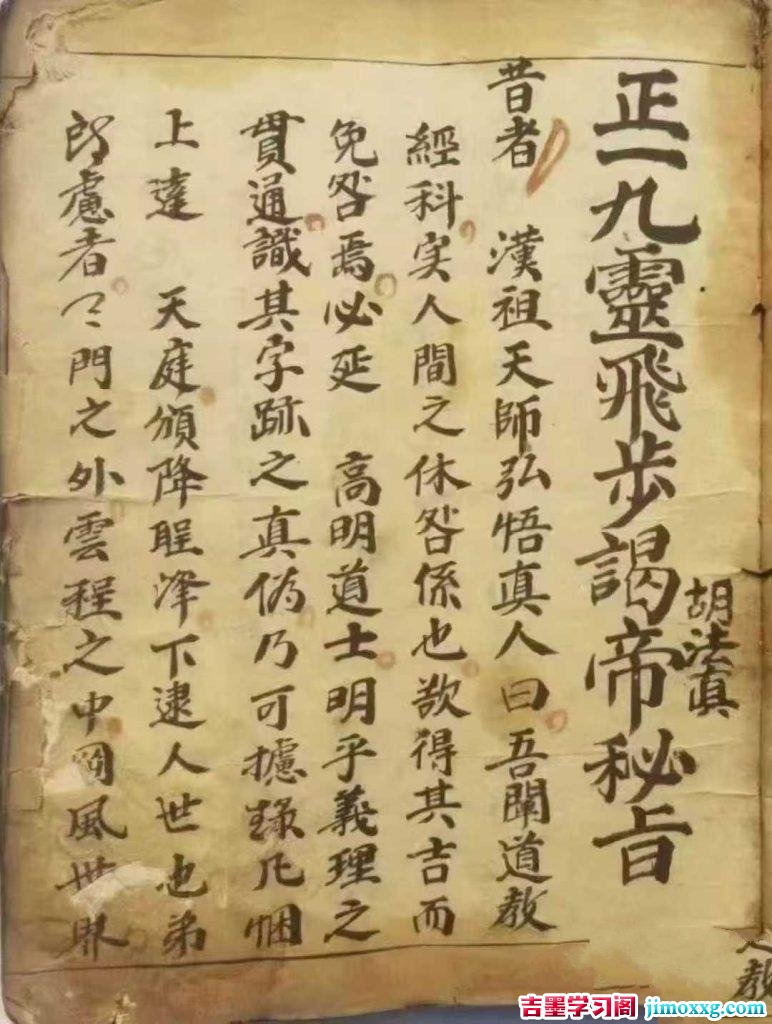 正一九靈飛步謁帝秘旨
胡法真
昔者 漢祖天師弘悟真人曰吾聞道教
經科实人間之休咎係也欲得其吉而
免咎焉必延 高明道士明乎義理之
貫通識其字跡之真僞乃可據錄凡悃
上達 天庭頒降 下逮人世也弟
慮者 門之外雲程之中罡風世界
教
吉墨学习阁 jimoxxg.com